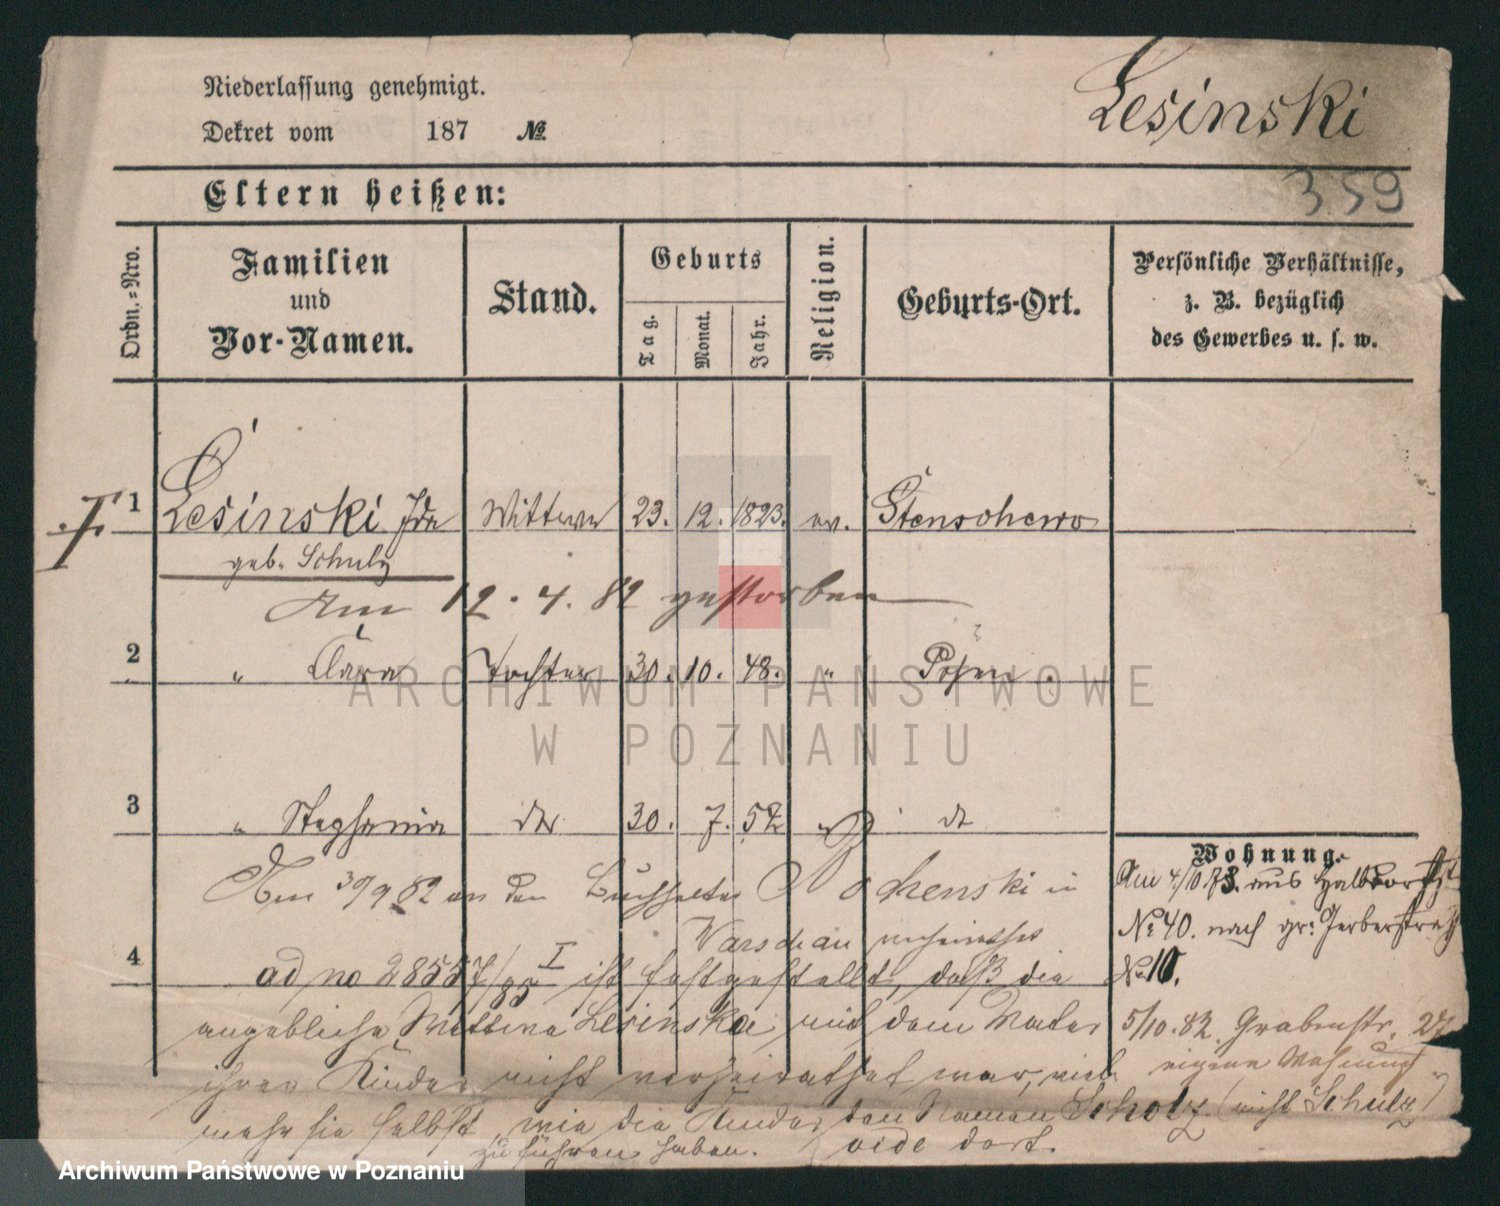 Niederlassung genehmigt.
Dekret vom 187 №
Lesinski
359
Eltern heißen:
Ordn.-Nro.
Familien
und
Vor-Namen.
Stand.
Geburts
Tag.
Monat.
Jahr.
Religion.
Geburts-Ort.
Persönliche Verhältnisse,
z. B. bezüglich
des Gewerbes u. s. w.
1 Lesinski Ida Wittwe 23. 12. 1823. ev. Stenschewo
geb. Schulz
Am 12. 4. 82 gestorben
2 " Clara Tochter 30. 10. 48. " Posen
ARCHIWUM PAŃSTWOWE
W POZNANIU
3 " Stephania 30. 7. 52
Wohnung.
Am 30/9 82 an den Buchhalter in
Warschau verheirathet
Am 4/10.78. aus Halbdorfst
No 40. nach gr: Gerberstraße
No 10.
4 ad no 28557/85 I ist festgestellt, daß die
angebliche Wittwe Lesinska mit dem Vater
5/10.82. Grabenstr. 27
eigene Wohnung
ihrer Kinder nicht verheirathet war, viel
mehr sie selbst, wie die Kinder den Namen Scholz (nicht Schulz)
zu führen haben. vide dort.
Archiwum Państwowe w Poznaniu